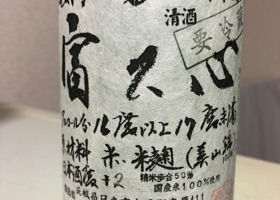 清酒
要冷蔵
富久心
アルコール分16度以上17度未満
原材料 米・米麹(美山錦)
精米歩合50%
日本酒度+2
国産米100%使用